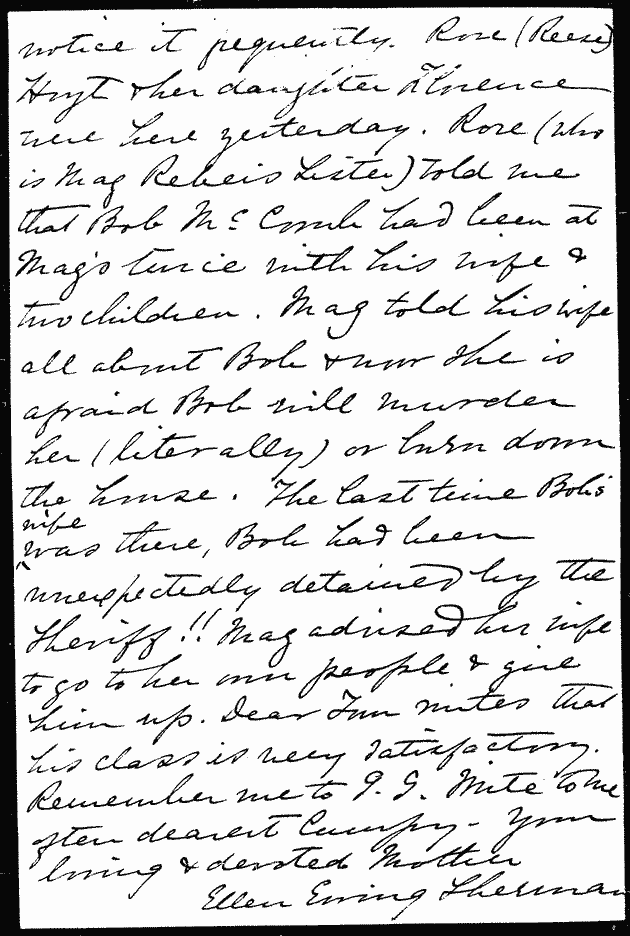 notice it frequently. Rose (Reese)
Hoyt & her daughter Florence
were here yesterday. Rose (who
is Mag Reber's Sister) told me
that Bob McComb had been at
Mag's twice with his wife &
two children. Mag told his wife
all about Bob & now she is
afraid Bob will murder
her (literally) or burn down
the house. The last time Bob's
wife
was there, Bob had been
unexpectedly detained by the
Sheriff!! Mag advised his wife
to go to her own people & give
him up. Dear Tom writes that
his class is very satisfactory.
Remember me to P. G. Write to me
often dearest Cumpy - Your
loving & devoted Mother
Ellen Ewing Sherman